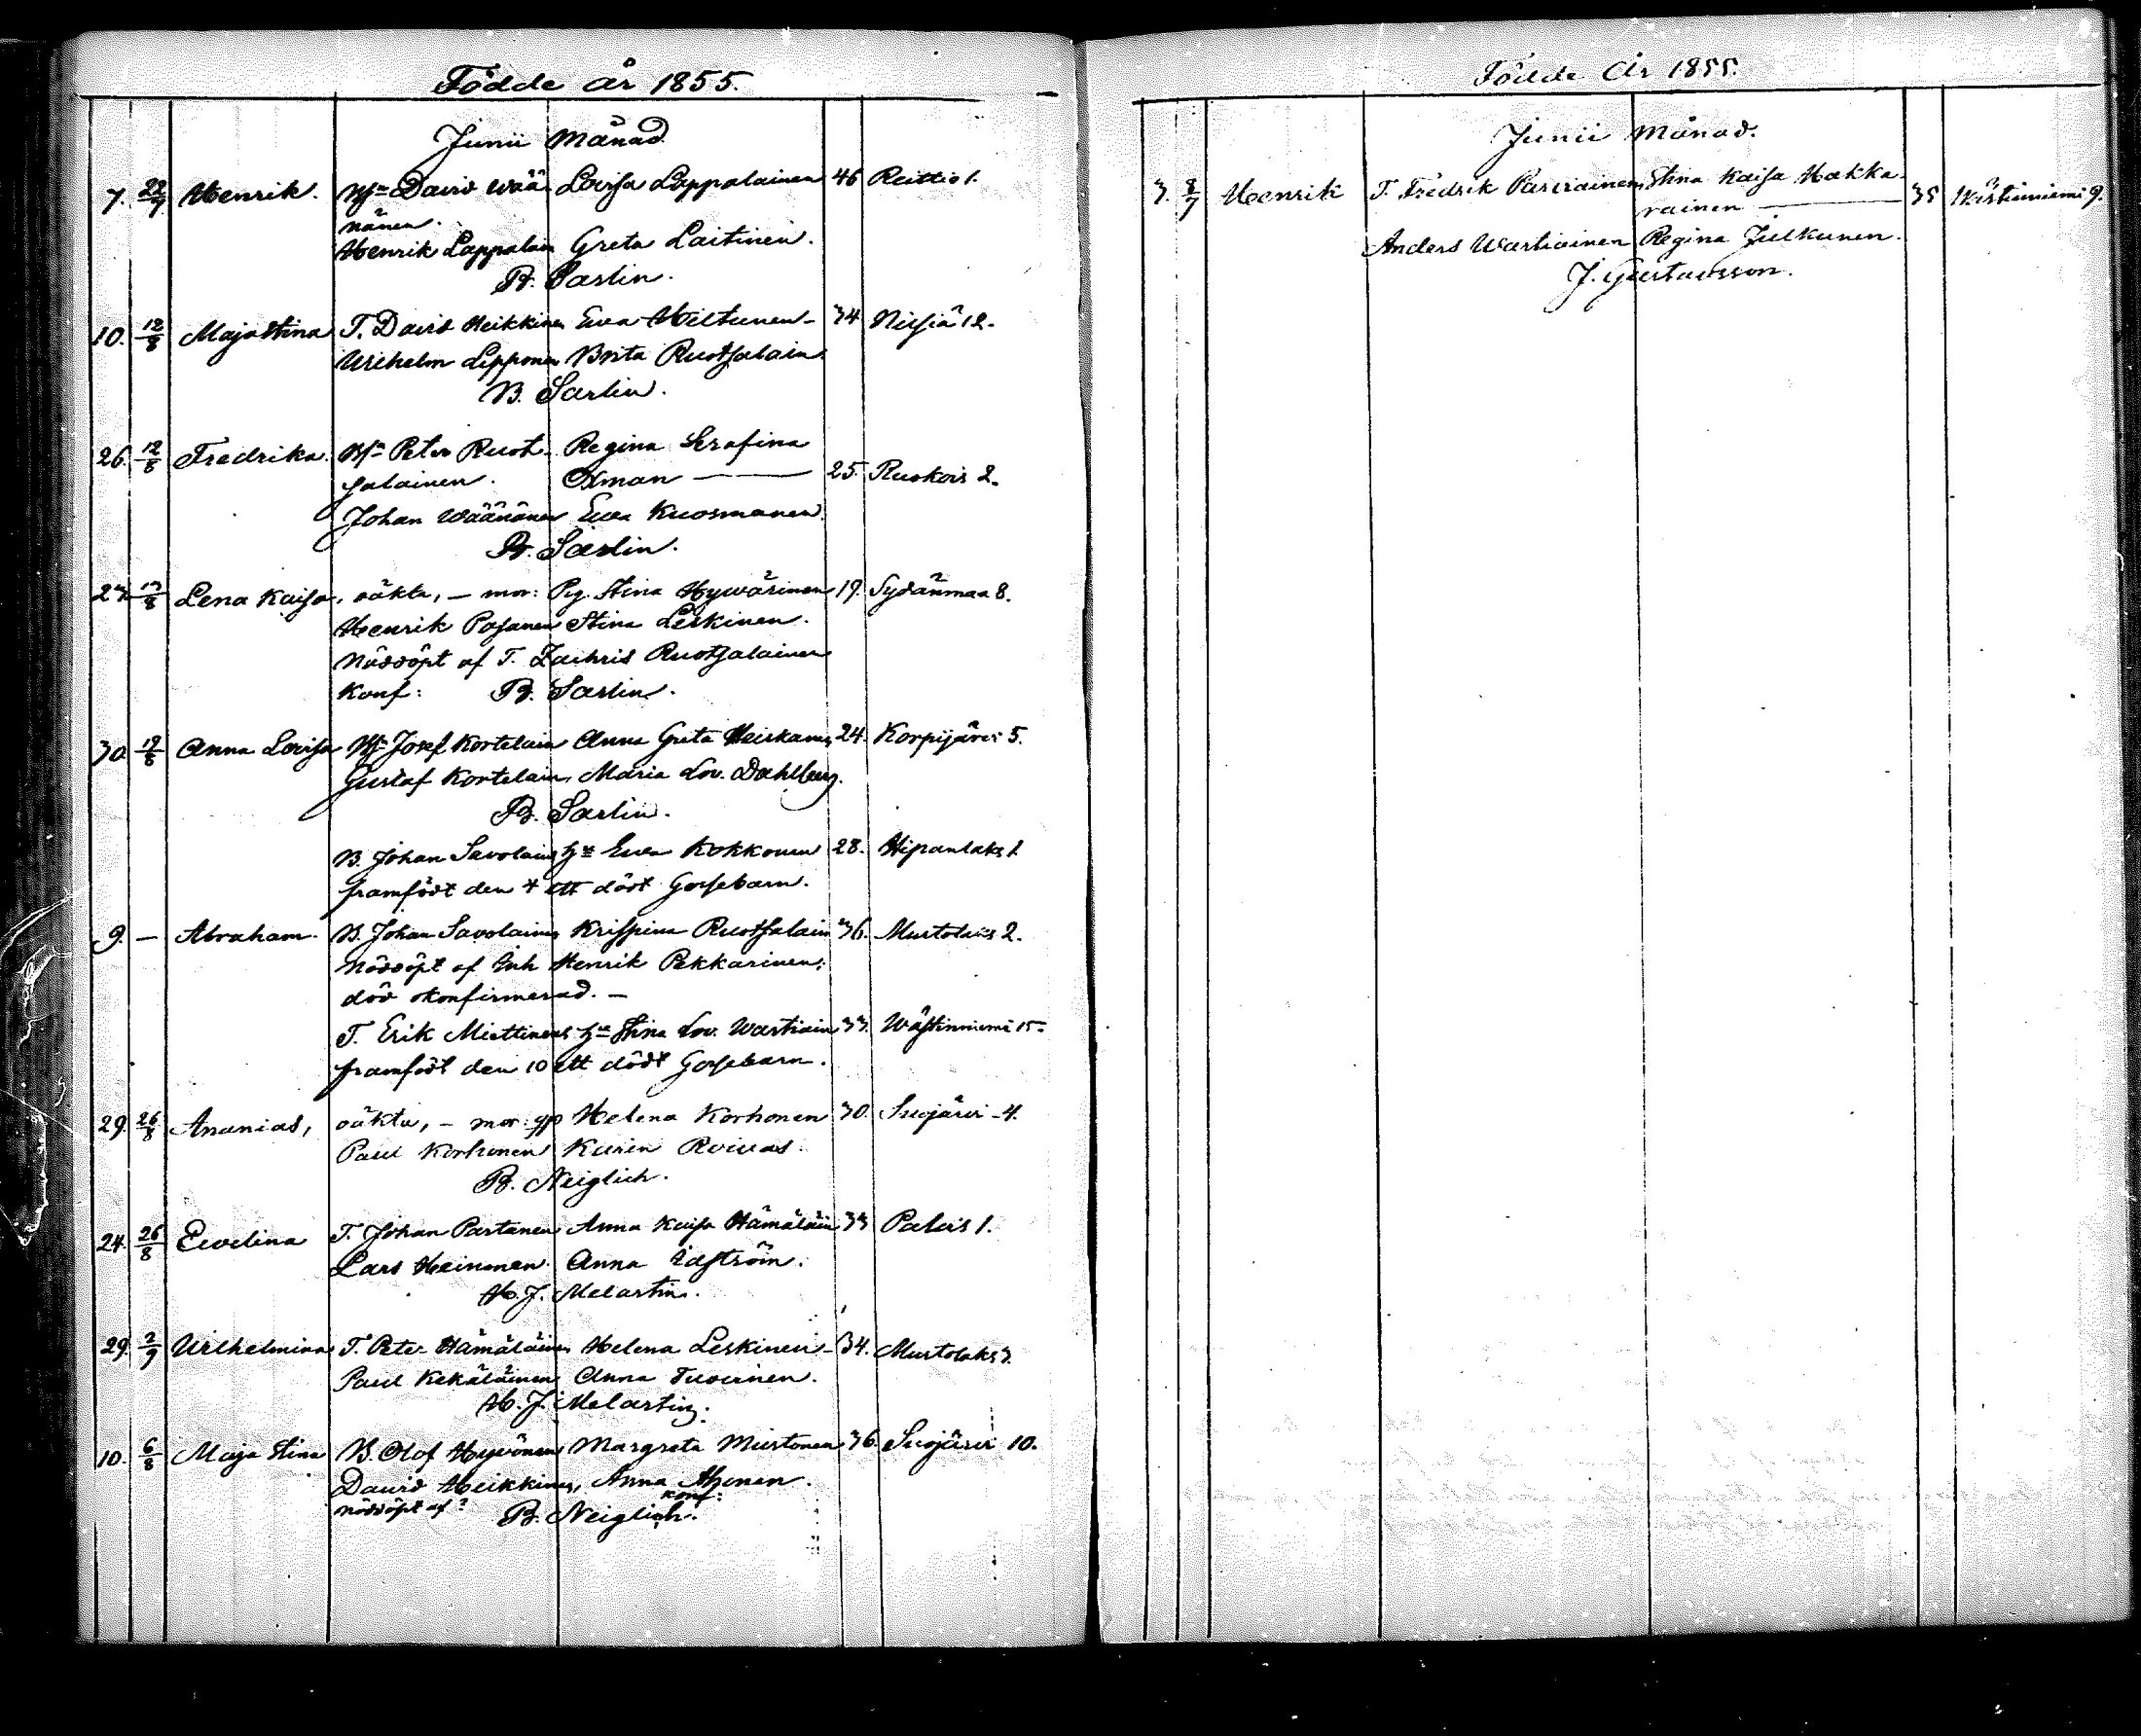 Födde år 1855.
Junii Månad
7. 22/7 Henrik. Bf= David Wää Lovisa Lappalainen 46 Reittio 1.
nänen.
Henrik Lappalain Greta Laitinen.
B. Sarlin.
10. 12/8 Maja Stina T. David Heikkinen Eva Hiltunen - 34 Nilsiä 12.
Wilhelm Lipponen Brita Ruotsalain
B. Sarlin.
26. 12/8 Fredrika. Bf= Peter Ruot- Regina Serafina
salainen. Öman 25. Ruokois 2.
Johan Wäänänen Ewa Kuosmanen.
B. Sarlin.
27. 12/8 Lena Kaisa, oäkta, - mor: Pig. Stina Hywärinen 19. Sydänmaa 8.
Henrik Posanen Stina Leskinen.
Nöddöpt af T. Zachris Ruotsalainen
Konf: B. Sarlin.
30. 12/8 Anna Lovisa Bf= Josef Kortelain Anna Greta Heiskanen 24. Korpijärvi 5.
Gustaf Kortelain, Maria Lov. Dahlberg.
B. Sarlin.
B. Johan Savolains h=u Ewa Kokkonen 28. Hipanlaks 1.
framfödt den 4 ett dödt Gossebarn.
9. - Abraham. B. Johan Savolainen Krispina Ruotsalain 36. Murtolaks 2.
Nöddöpt af Inh Henrik Pekkarinen;
död okonfirmerad. -
T. Erik Miettinens h=u Stina Lov. Wartiain 33. Wästinniemi 15-
framfödt den 10 ett dödt Gossebarn.
29. 26/8 Ananias, oäkta, - mor: Helena Korhonen 30. Suojärvi - 4.
Paul Korhonen Karin Roivas.
B. Neiglich.
24. 26/8 Evelina T. Johan Partanen Anna Kaisa Hämäläin 33 Palois 1.
Lars Heinonen. Anna Idström.
H. J. Melartin.
29. 2/9 Wilhelmina T. Peter Hämäläinen Helena Leskinen - 34. Murtolaks 3.
Paul Kekäläinen Anna Tuovinen.
H. J. Melartin.
10. 6/8 Maja Stina B. Olof Hyvönen Margreta Miirtonen 36. Suojärvi 10.
David Heikkinen, Anna Ahonen.
nöddöpt af? konf:
B. Neiglich.
Födde År 1855.
Junii Månad.
3. 8/7 Henrik T. Fredrik Parviainen Stina Kaisa Hakka-
rainen 35 Wästinniemi 9.
Anders Wartiainen Regina Julkunen.
J. Gustavsson.